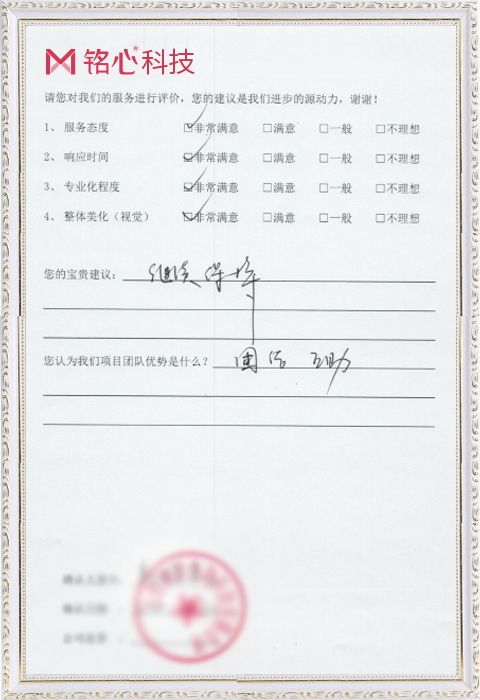 铭心科技®
请您对我们的服务进行评价，您的建议是我们进步的源动力，谢谢！
1、 服务态度 ☑非常满意 □满意 □一般 □不理想
2、 响应时间 ☑非常满意 □满意 □一般 □不理想
3、 专业化程度 ☑非常满意 □满意 □一般 □不理想
4、 整体美化（视觉） ☑非常满意 □满意 □一般 □不理想
您的宝贵建议： 继续保持
您认为我们项目团队优势是什么？ 团结 互助